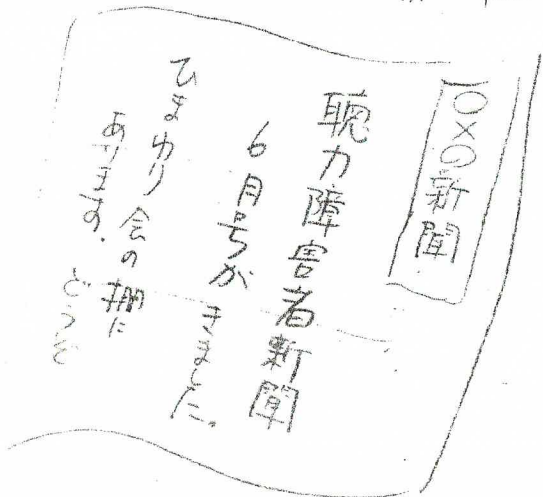 〇×の新聞
聴力障害者新聞
6月号が きました。
ひまわり会の棚に
あります。どうぞ